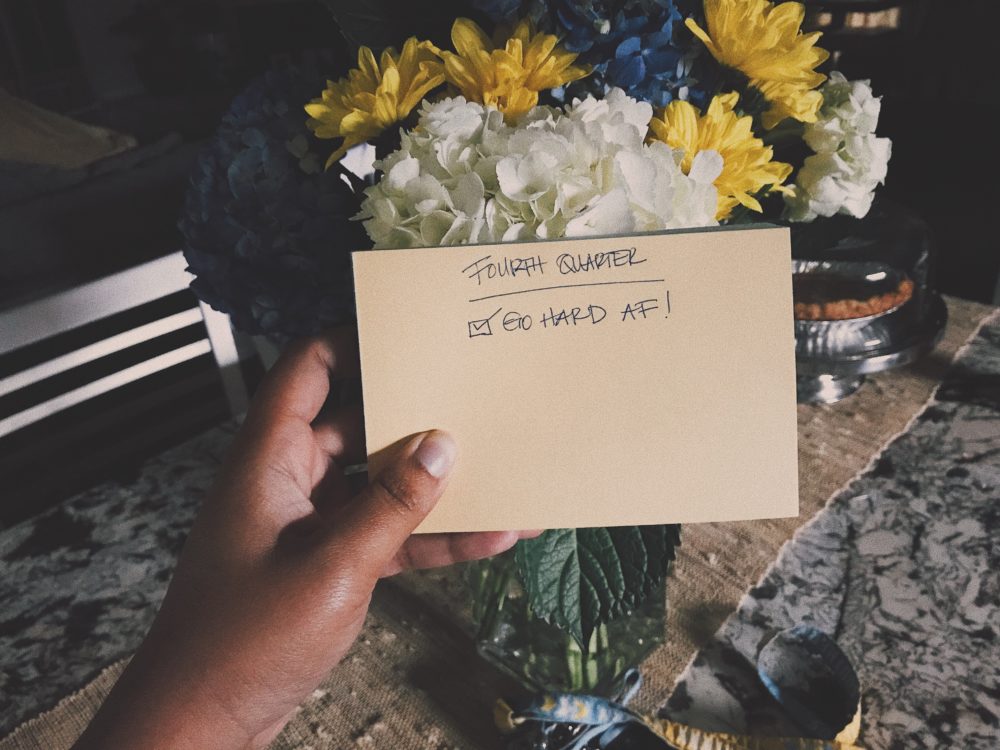 FOURTH QUARTER
☑ GO HARD AF!